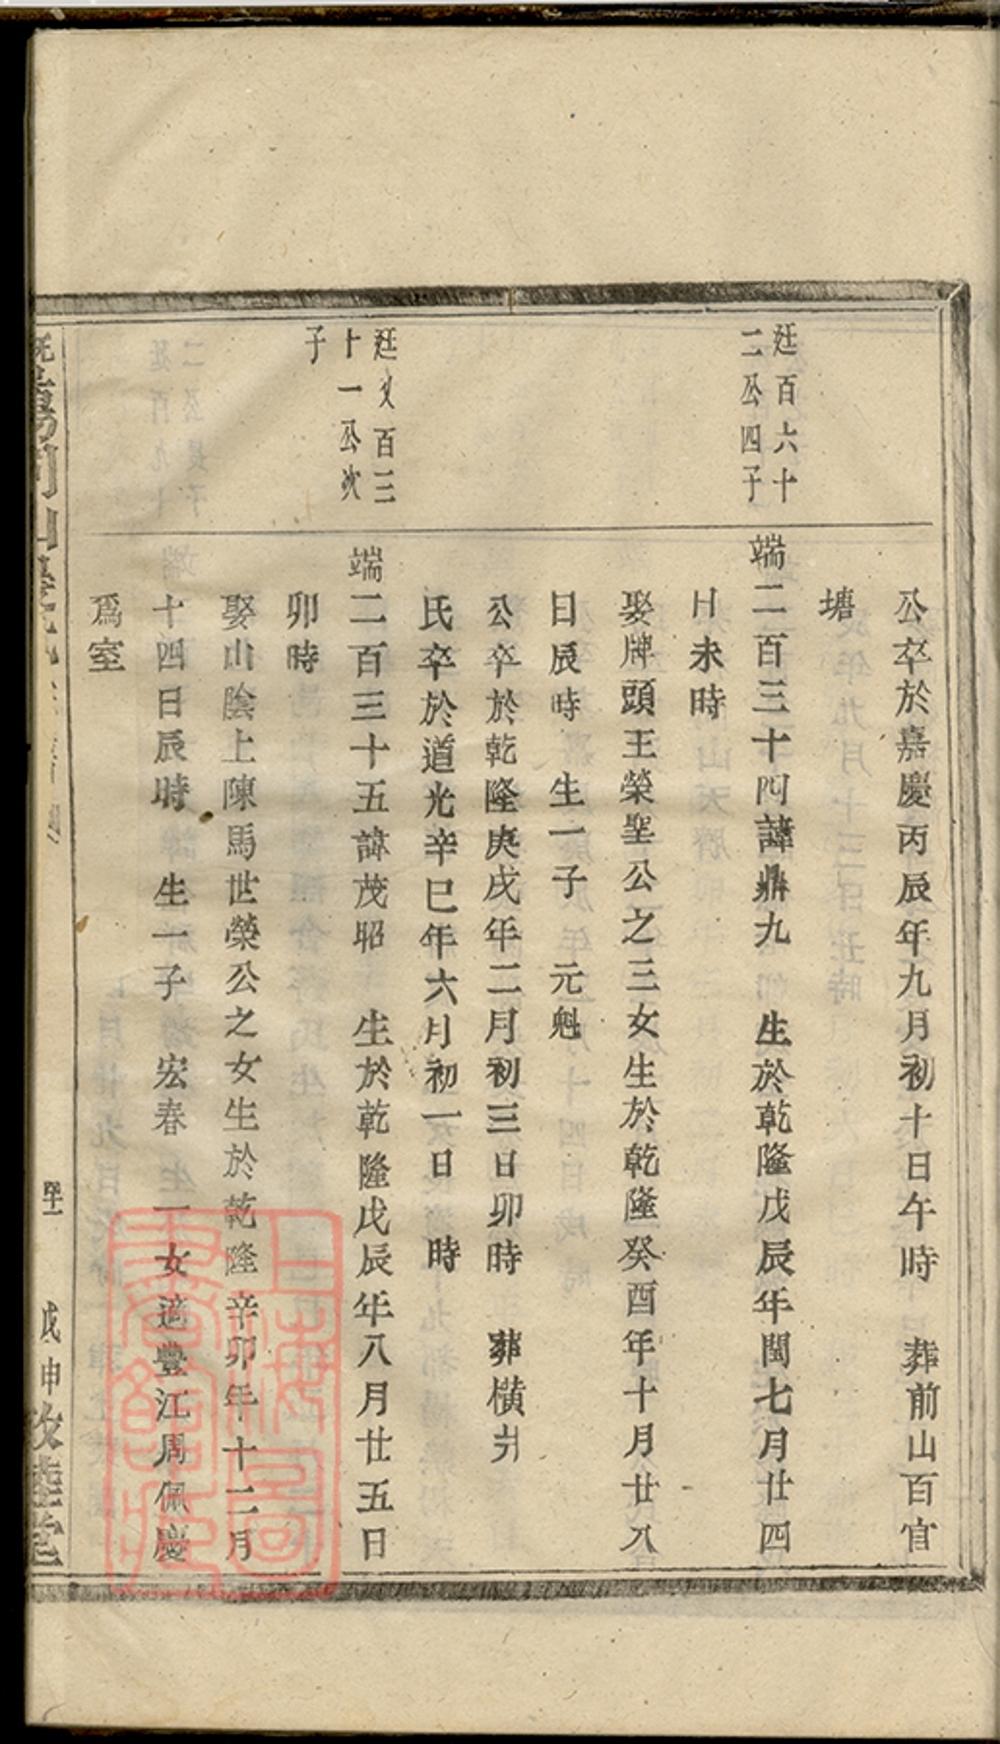 公卒於嘉慶丙辰年九月初十日午時 葬前山百官
塘
廷百六十
二公四子
端二百三十四諱鼎九 生於乾隆戊辰年閏七月廿四
日未時
娶牌頭王榮聖公之三女生於乾隆癸酉年十月廿八
日辰時 生一子 元魁
公卒於乾隆庚戌年二月初三日卯時 葬橫圳
氏卒於道光辛巳年六月初一日 時
廷乂百三
十一公次
子
端二百三十五諱茂昭 生於乾隆戊辰年八月廿五日
卯時
娶山陰上陳馬世榮公之女生於乾隆辛卯年十二月
十四日辰時 生一子 宏春 一女適豐江周佩慶
爲室
戊申
上海圖書館藏